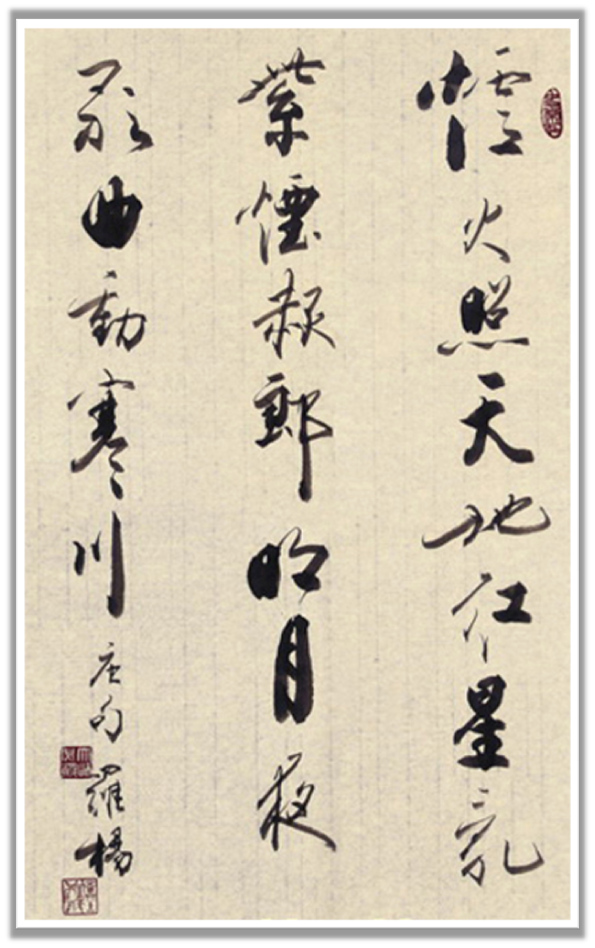 爐火照天地红星亂
紫煙赧郎明月夜
歌曲動寒川 唐句 羅楊